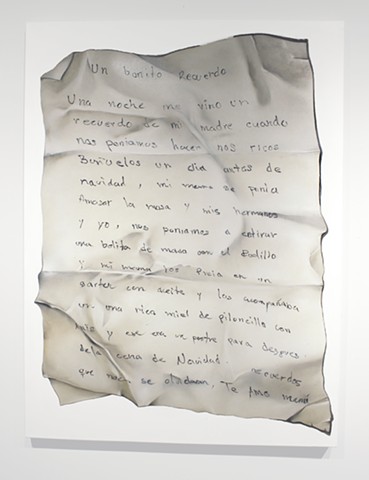 Un bonito Recuerdo
Una noche me vino un
recuerdo de mi madre cuando
nos poniamos hacer nos ricos
Buñuelos un dia antes de
navidad, mi mama se ponia
Amasar la masa y mis hermanos
y yo, nos poniamos a estirar
una bolita de masa con el Rodillo
y mi mama los freia en un
sarten con aceite y los acompañaba
una rica miel de piloncillo con
y ese era un postre para despues
dela cena de Navidad. recuerdos
que nunca se olvidaran, Te Amo mamá